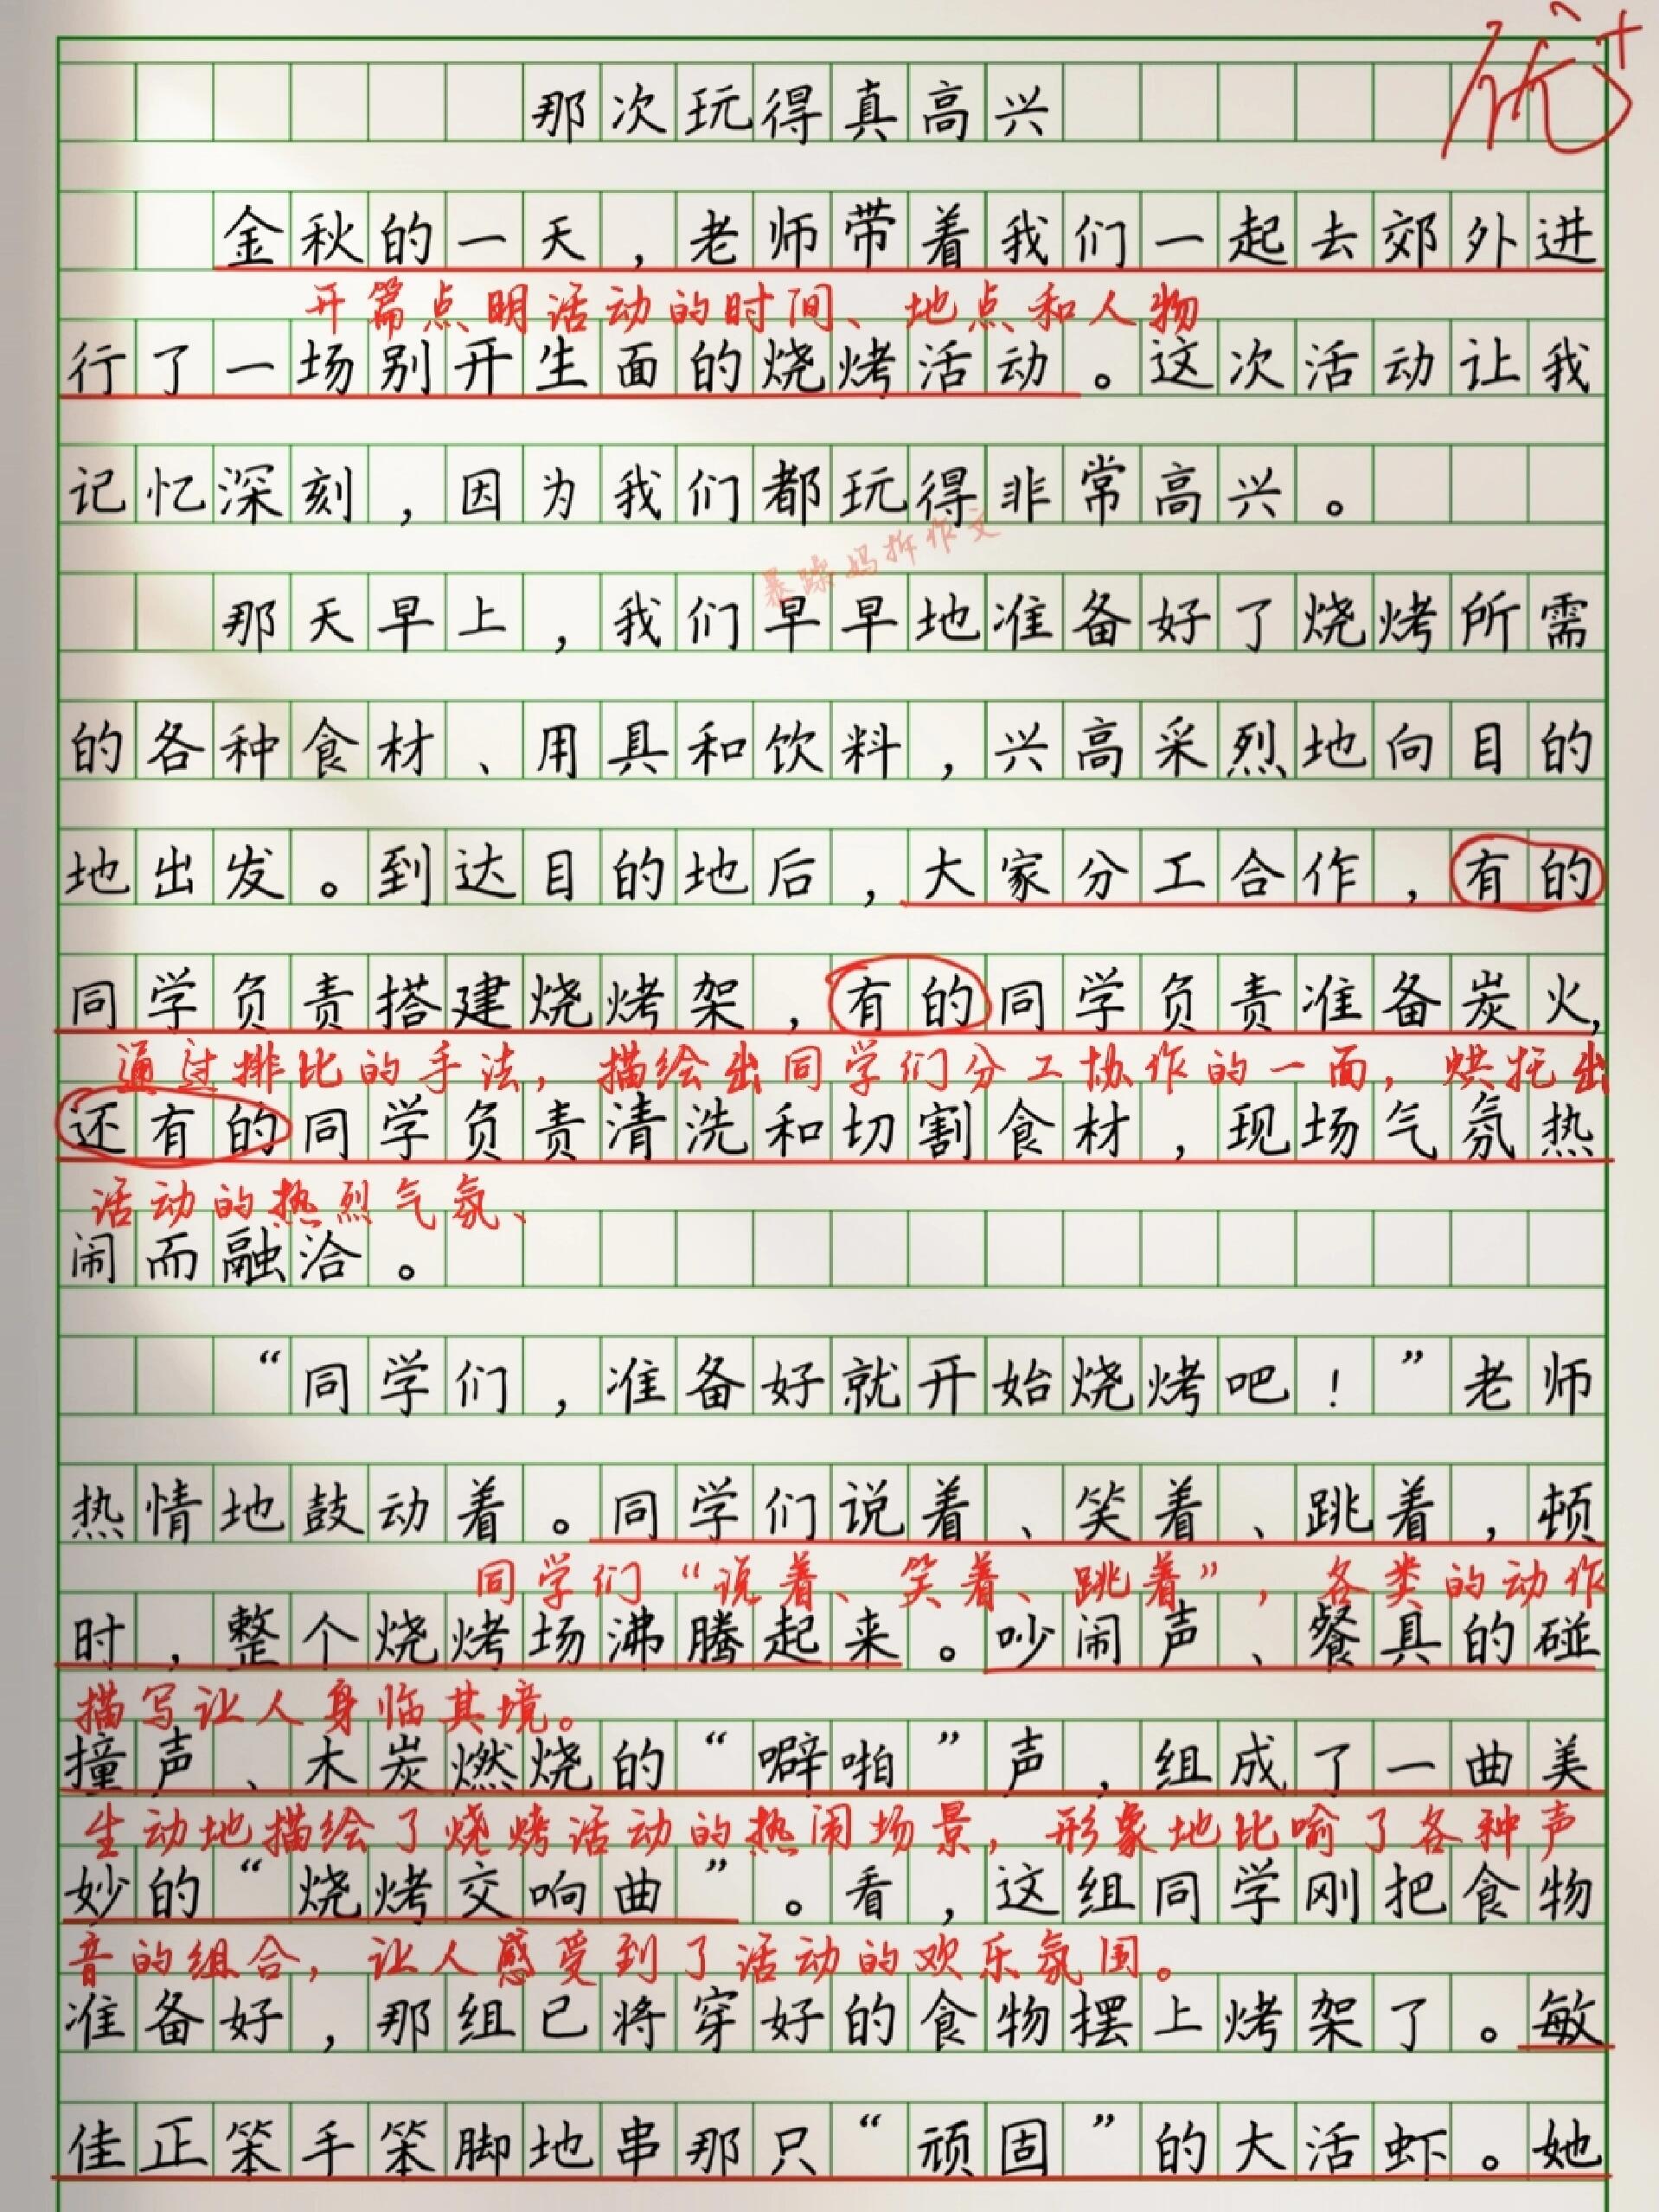 优+
那次玩得真高兴
金秋的一天，老师带着我们一起去郊外进
开篇点明活动的时间、地点和人物
行了一场别开生面的烧烤活动。这次活动让我
记忆深刻，因为我们都玩得非常高兴。
暴躁妈拆作文
那天早上，我们早早地准备好了烧烤所需
的各种食材、用具和饮料，兴高采烈地向目的
地出发。到达目的地后，大家分工合作，有的
同学负责搭建烧烤架，有的同学负责准备炭火，
通过排比的手法，描绘出同学们分工协作的一面，烘托出
还有的同学负责清洗和切割食材，现场气氛热
活动的热烈气氛、
闹而融洽。
“同学们，准备好就开始烧烤吧！”老师
热情地鼓动着。同学们说着、笑着、跳着，顿
同学们“说着、笑着、跳着”，各类的动作
时，整个烧烤场沸腾起来。吵闹声、餐具的碰
描写让人身临其境。
撞声、木炭燃烧的“噼啪”声，组成了一曲美
生动地描绘了烧烤活动的热闹场景，形象地比喻了各种声
妙的“烧烤交响曲”。看，这组同学刚把食物
音的组合，让人感受到了活动的欢乐氛围。
准备好，那组已将穿好的食物摆上烤架了。敏
佳正笨手笨脚地串那只“顽固”的大活虾。她